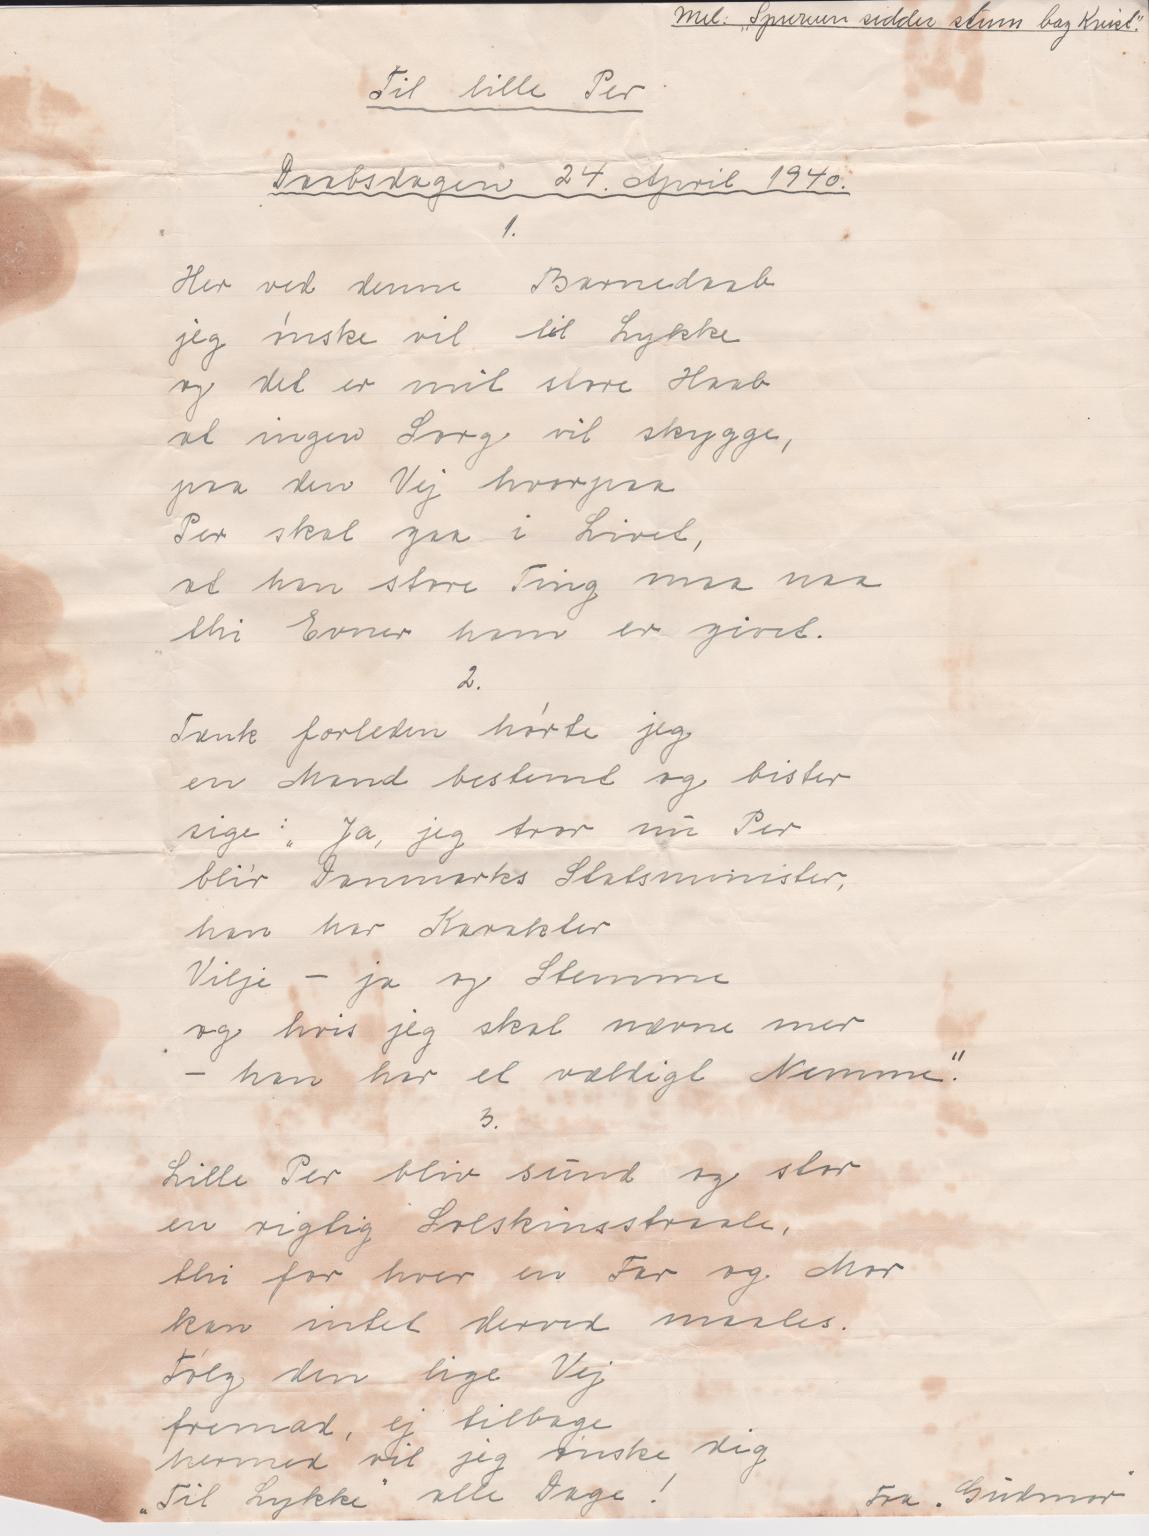 Mel: „Spurven sidder stum bag Kvist."
Til lille Per
Daabsdagen 24. April 1940.
1.
Her ved denne Barnedaab
jeg ønske vil til Lykke
og det er mit store Haab
at ingen Sorg vil skygge,
paa den Vej hvorpaa
Per skal gaa i Livet,
at han store Ting maa naa
thi Evner ham er givet.
2.
Tænk forleden hørte jeg
en Mand bestemt og bister
sige: „Ja, jeg tror nu Per
bli'r Danmarks Statsminister,
han har Karakter
Vilje - ja og Stemme
og hvis jeg skal nævne mer
- han har et vældigt Nemme".
3.
Lille Per bliv sund og stor
en rigtig Solskinsstraale,
thi for hver en Far og Mor
kan intet derved maales.
Følg den lige Vej
fremad, ej tilbage
hermed vil jeg ønske dig
„Til Lykke" alle Dage!
Fra „Gudmor"